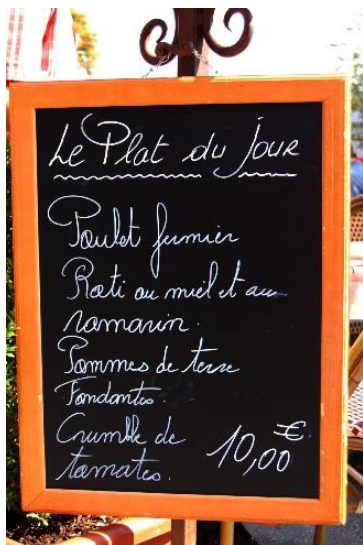 Le Plat du Jour
Poulet fermier
Roti au miel et au
romarin.
Pommes de terre
Fondantes.
Crumble de
tomates.
10,00 €